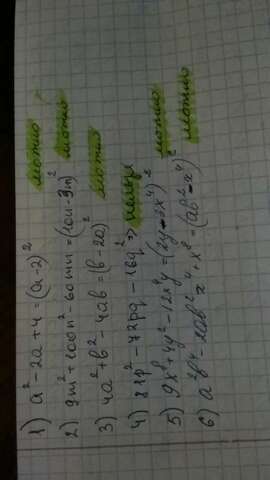 1) a² - 2a + 4 = (a - 2)² можно
2) 9m² + 100n² - 60mn = (10n - 3m)² можно
3) 4a² + b² - 4ab = (b - 2a)² можно
4) 81p² - 72pq - 16q² => нельзя
5) 9x⁸ + 4y² - 12x⁴y = (2y - 3x⁴)² можно
6) a²b⁴ - 2ab²x⁴ + x⁸ = (ab² - x⁴)² можно